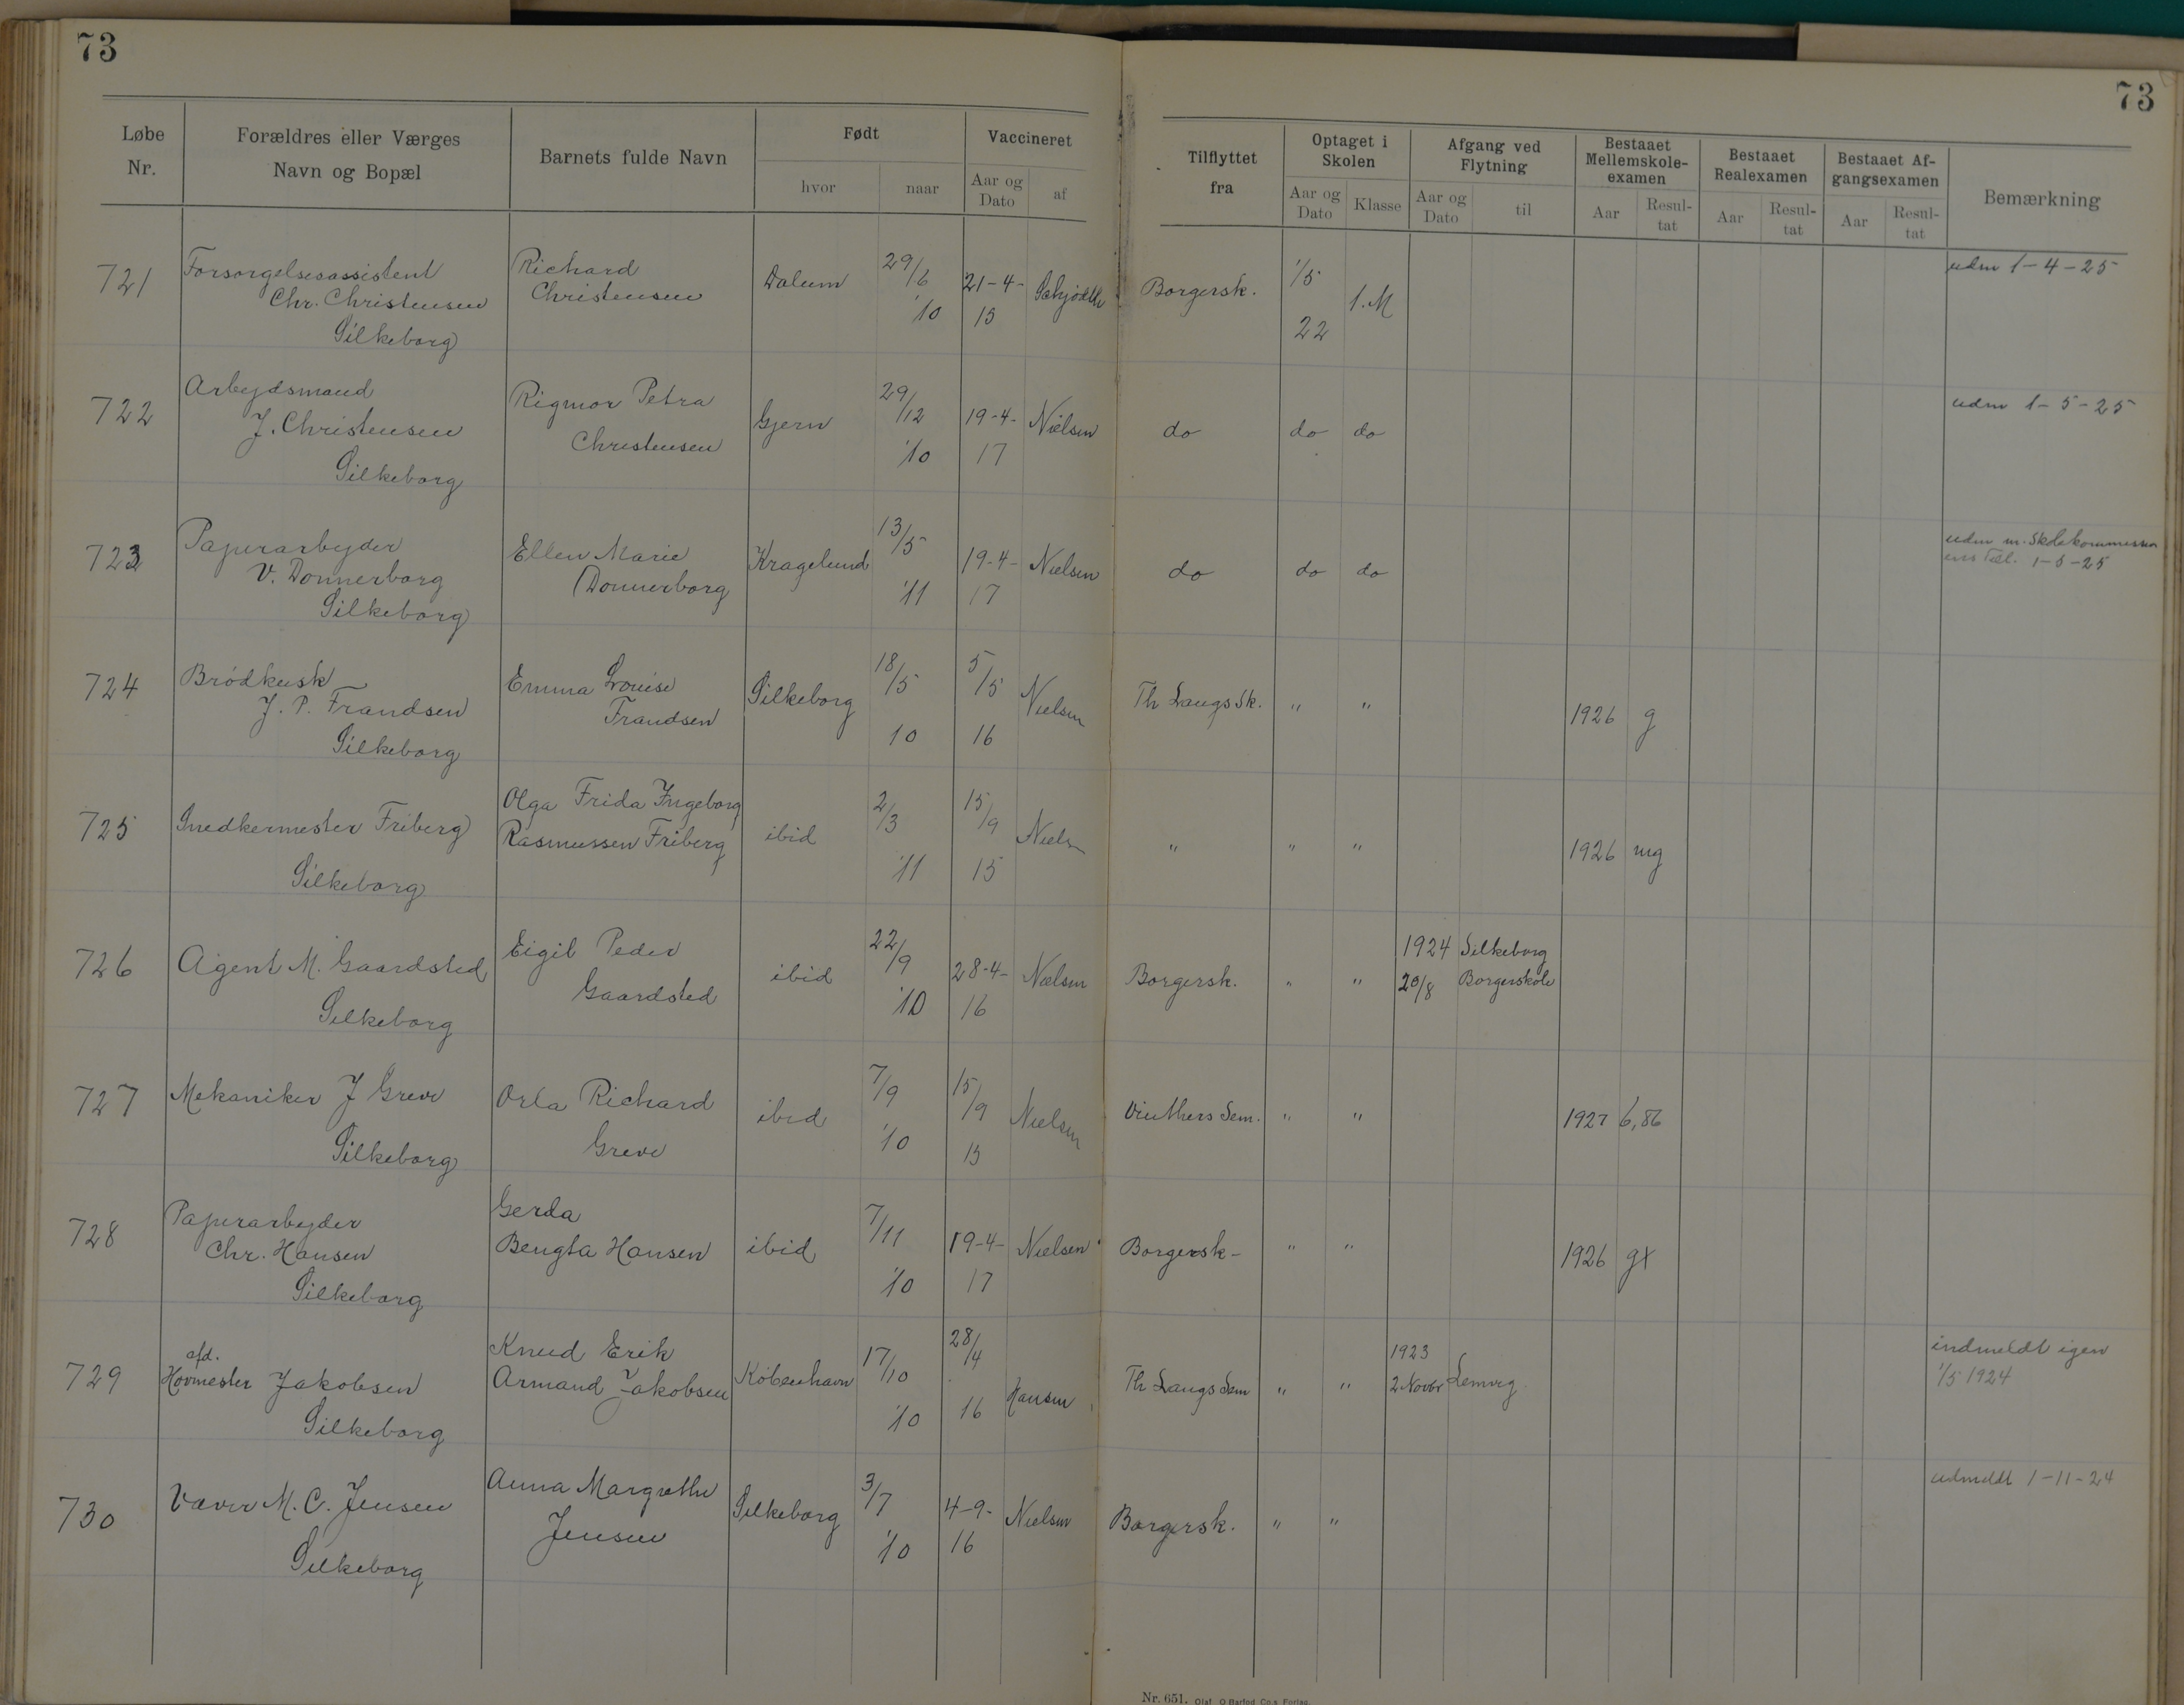 73
73
Løbe Nr.
Forældres eller Værges Navn og Bopæl
Barnets fulde Navn
Født
hvor
naar
Vaccineret
Aar og Dato
af
Tilflyttet fra
Optaget i Skolen
Aar og Dato
Klasse
Afgang ved Flytning
Aar og Dato
til
Bestaaet Mellemskole-examen
Aar
Resul-tat
Bestaaet Realexamen
Aar
Resul-tat
Bestaaet Af-gangsexamen
Aar
Resul-tat
Bemærkning
721 Forsorgelsesassistent Richard 29/6 1/5 udm 1-4-25
Chr. Christensen Christensen Dalum 21-4- Schjødth Borgersk. 1.M
Silkeborg '10 15 22
722 Arbejdsmand Rigmor Petra 29/12 udm 1-5-25
J. Christensen Christensen Gjern 19-4- Nielsen do do do
Silkeborg '10 17
723 Papirarbejder Ellen Marie 13/5 udm m. Skolekommission
V. Donnerborg Donnerborg Kragelund 19-4- Nielsen do do do ens Tal. 1-5-25
Silkeborg '11 17
724 Brödkusk Emma Louise 18/5 5/5
J. P. Frandsen Frandsen Silkeborg Nielsen Th Langs Sk. " " 1926 g
Silkeborg 10 16
725 Snedkermester Friberg Olga Frida Ingeborg 2/3 15/9
Rasmussen Friberg ibid Niels " " " 1926 mg
Silkeborg '11 15
726 Agent M. Gaardsted Eigil Peder 22/9 1924 Silkeborg
Gaardsted ibid 28-4- Nielsen Borgersk. " " 20/8 Borgerskole
Silkeborg '10 16
727 Mekaniker J Greve Orla Richard 7/9 15/9
Greve ibid Nielsen Vinthers Sem. " " 1927 6,86
Silkeborg '10 15
728 Papirarbejder Gerda 7/11
Chr. Hansen Bengta Hansen ibid 19-4- Nielsen Borgersk- " " 1926 g+
Silkeborg '10 17
729 afd. Knud Erik 17/10 28/4 1923 indmeldt igen
Hovmester Jakobsen Armand Jakobsen København Hansen Th Langs Sem " " 2 Novbr Lemvig 1/5 1924
Silkeborg '10 16
730 Væver M. C. Jensen Anna Margrethe 3/7 udmeldt 1-11-24
Jensen Silkeborg 4-9- Nielsen Borgersk. " "
Silkeborg '10 16
Nr. 651. Olaf O Barfod Co.s Forlag.